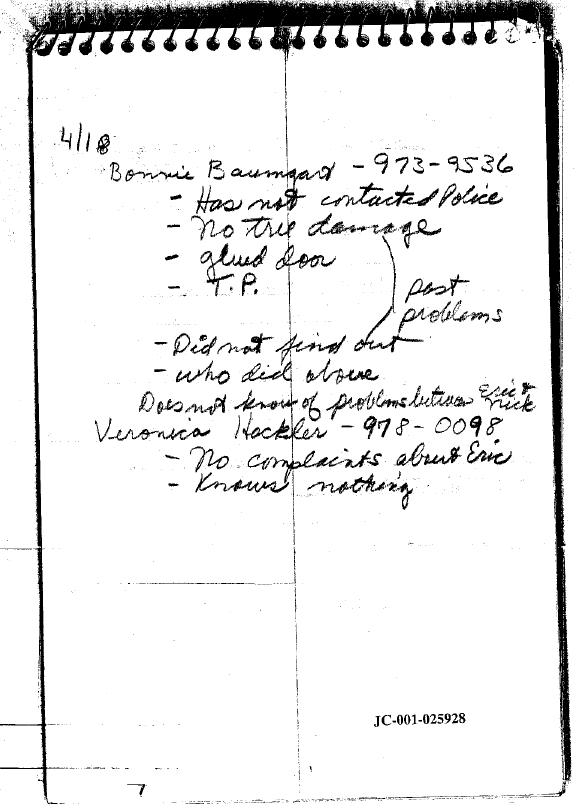 4/18
Bonnie Baumgart - 973-9536
- Has not contacted Police
- No tree damage
- glued door
- T.P.
past
problems
- Did not find out
- who did above
Does not know of problems between Eric & Nick
Veronica Hackler - 978-0098
- No complaints about Eric
- Knows nothing
JC-001-025928
7